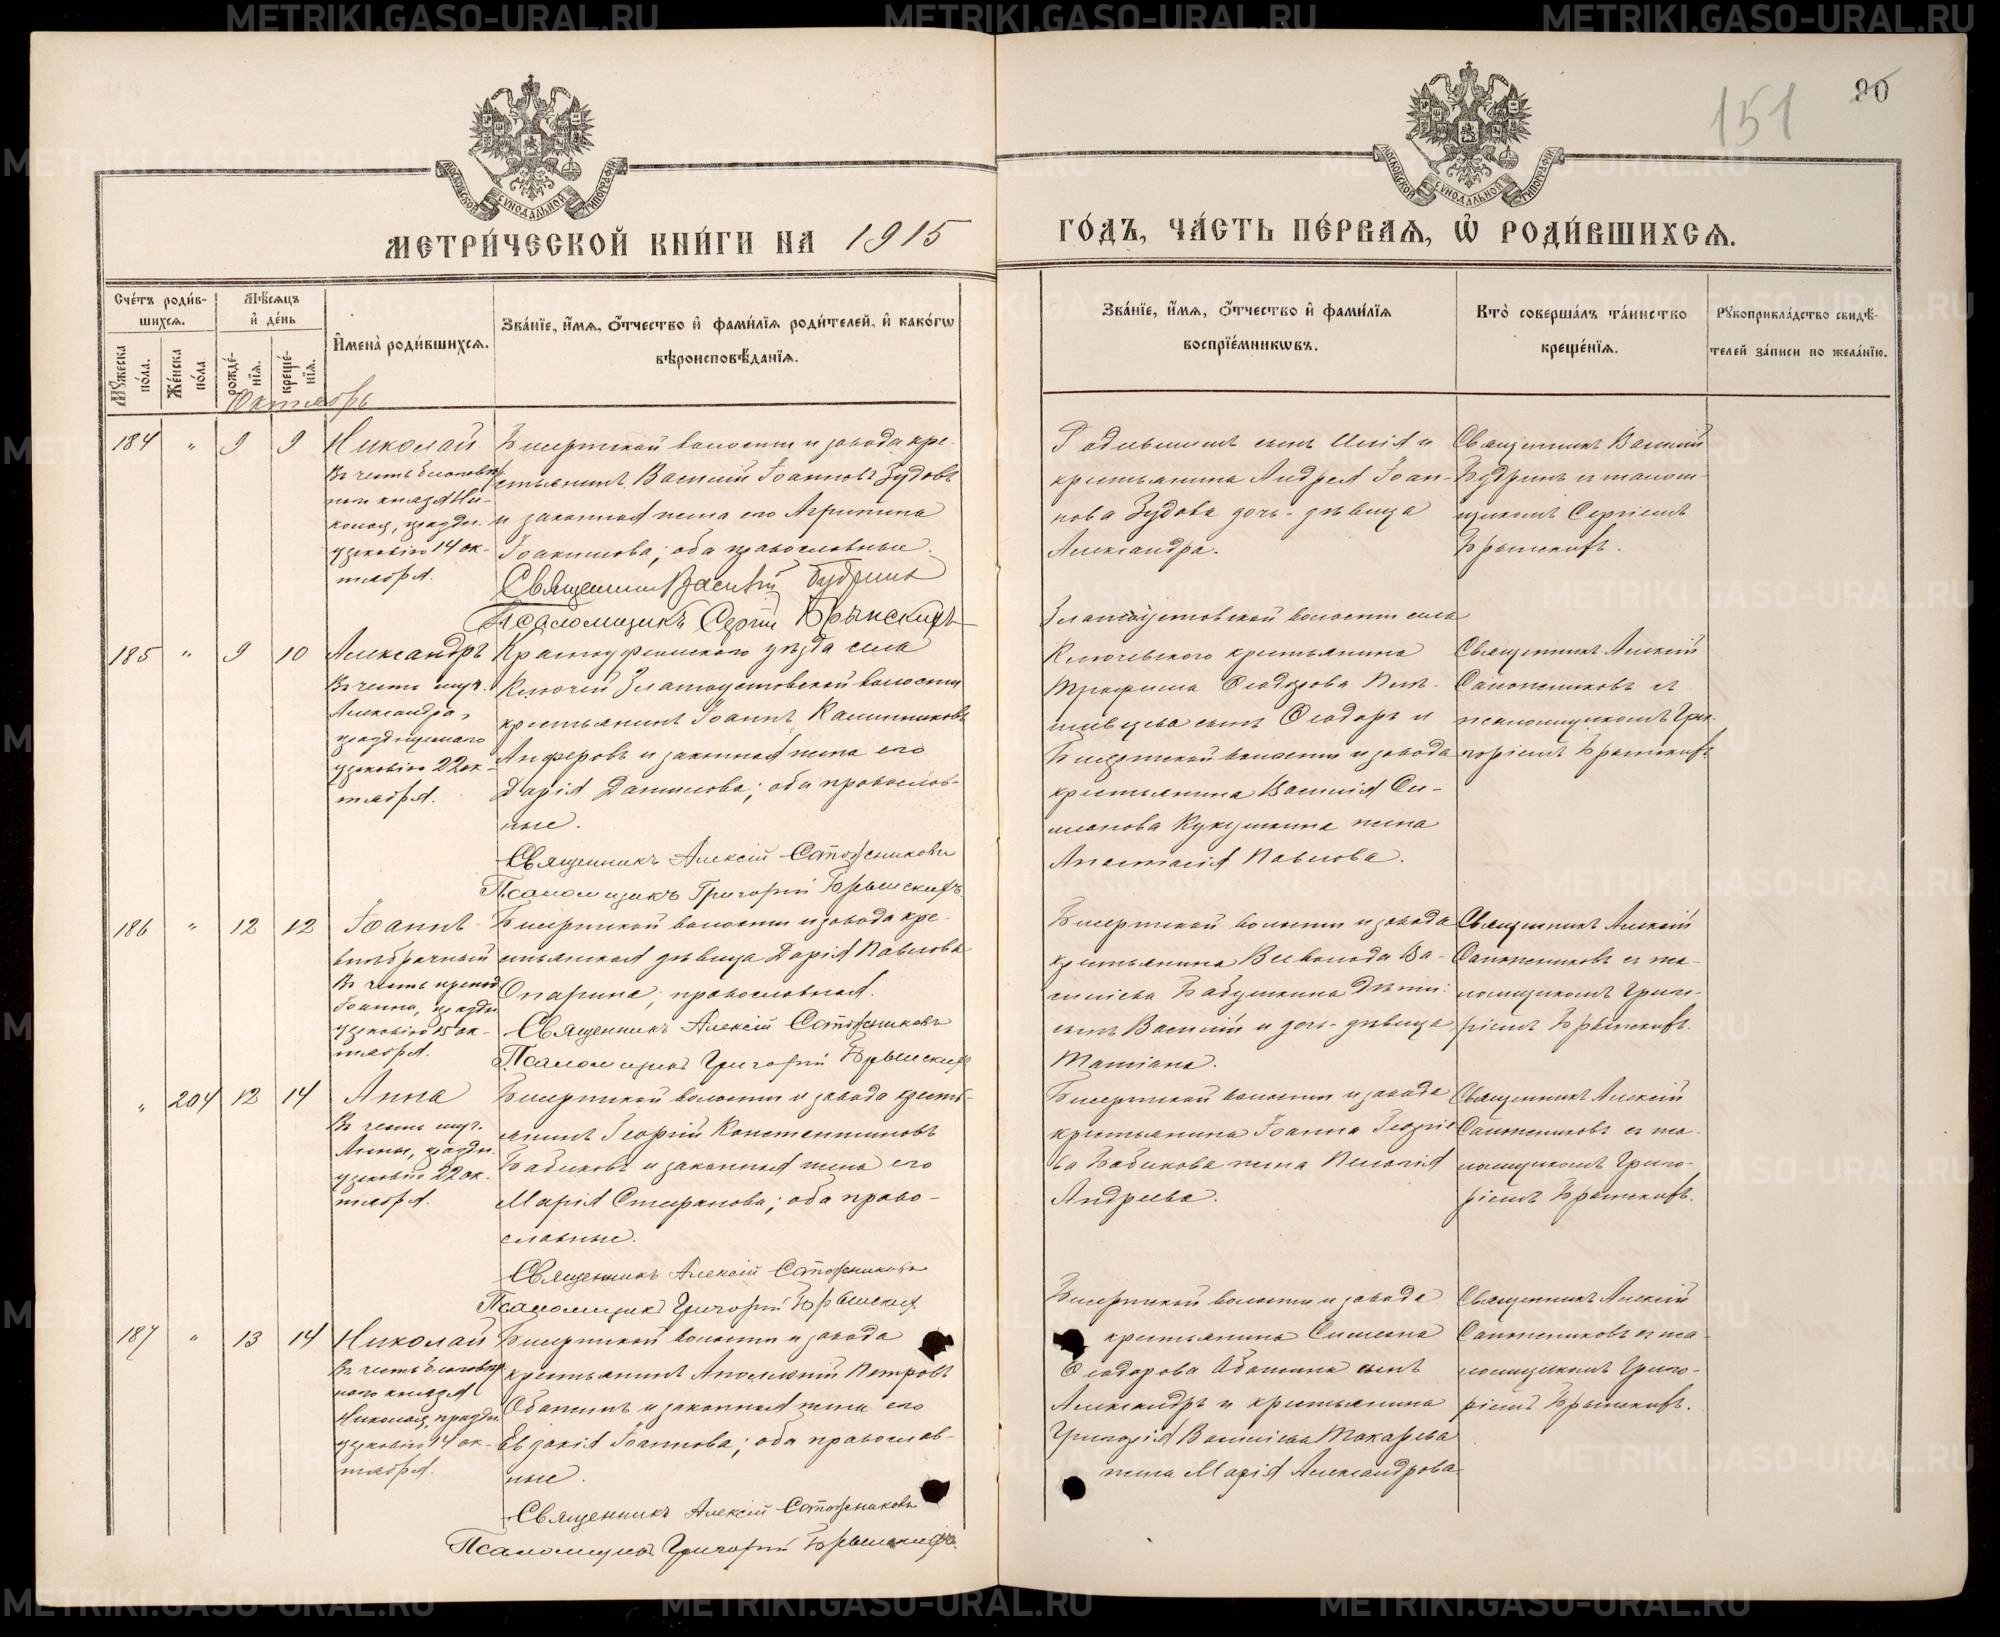 151
90
МОСКОВСКОЙ СѴНОДАЛЬНОЙ ТИПОГРАФІИ
МОСКОВСКОЙ СѴНОДАЛЬНОЙ ТИПОГРАФІИ
МЕТРИ́ЧЕСКОЙ КНИ́ГИ НА 1915
ГО́ДЪ, ЧА́СТЬ ПЕ́РВАЯ, Ѡ҆ РОДИ́ВШИХСЯ.
Сче́тъ роди́в-
шихся.
Мѣ́сяцъ
и҆ де́нь
Мꙋ́жеска по́ла.
Же́нска по́ла
рожде́-
нїя.
креще́-
нїя.
И҆мена̀ роди́вшихся.
Зва́нїе, и҆́мя, ѻ҆́тчество и҆ фами́лїя роди́телей, и҆ како́гѡ
вѣроисповѣ́данїя.
Зва́нїе, и҆́мя, ѻ҆́тчество и҆ фами́лїя
воспрїе́мникѡвъ.
Кто̀ соверша́лъ та́инство
креще́нїя.
Рꙋкоприкла́дство свидѣ́-
телей за́писи по жела́нїю.
Октябрь
184 " 9 9 Николай
Въ честь благовѣр
наго князя Ни-
колая, праздн.
церковію 14 ок-
тября.
Бисертской волости и завода кре-
стьянинъ Василій Іоанновъ Зудовъ
и законная жена его Агрипина
Іоакимова; оба православные.
Священникъ Василій Будринъ
Псаломщикъ Сергій Брынскихъ
крестьянина Андрея Іоан-
нова Зудова дочь-дѣвица
Александра.
Священникъ Василій
Будринъ и псалом-
щикомъ Сергіемъ
Брынских.
185 " 9 10 Александръ
Въ честь муч.
Александра,
празднуемаго
церковію 22 ок-
тября.
Красноуфимскаго уѣзда села
Ключей Златоустовской волости
крестьянинъ Іоаннъ Калинниковъ
Анферовъ и законная жена его
Дарія Данилова; оба православ-
ные.
Священникъ Алексій Сапожниковъ
Псаломщикъ Григорій Брынскихъ
Златоустовской волости села
Ключевскаго крестьянина
Трофима Ѳеодорова
сынъ Ѳеодоръ и
Бисертской волости и завода
крестьянина Василія Си-
монова Кукушкина жена
Анастасія Павлова.
Священникъ Алексій
Сапожниковъ и
псаломщикомъ Гри-
горіемъ Брынских.
186 " 12 12 Іоаннъ
внѣбрачный
Въ честь препод
Іоанна, праздн
церковію 15 ок-
тября.
Бисертской волости и завода кре-
стьянская дѣвица Дарія Павлова
Опарина, православная.
Священникъ Алексій Сапожниковъ
Псаломщикъ Григорій Брынскихъ
Бисертской волости и завода
крестьянина Всеволода Ва-
сильева Бабушкина дѣти:
сынъ Василій и дочь-дѣвица
Татіана.
Священникъ Алексій
Сапожниковъ съ пса-
ломщикомъ Григо-
ріемъ Брынских.
" 204 12 14 Анна
Въ честь муч.
Анны, праздн.
церковію 22 ок-
тября.
Бисертской волости и завода кресть-
янинъ Георгій Константиновъ
Бабиковъ и законная жена его
Марія Стефанова; оба право-
славные.
Священникъ Алексій Сапожниковъ
Псаломщикъ Григорій Брынских
Бисертской волости и завода
крестьянина Іоанна Георгіе
ва Бабикова жена Пелагія
Андреева.
Священникъ Алексій
Сапожниковъ съ пса-
ломщикомъ Григо-
ріемъ Брынскихъ.
187 " 13 14 Николай
Въ честь благовѣр
наго князя
Николая, праздн.
церковію 14 ок-
тября.
Бисертской волости и завода
крестьянинъ Аполлоній Петровъ
Обатинъ и законная жена его
Евдокія Іоаннова; оба православ-
ные.
Священникъ Алексій Сапожниковъ
Псаломщикъ Григорій Брынскихъ.
Бисертской волости и завода
крестьянина Симеона
Ѳеодорова Обатина сынъ
Александръ и крестьянина
Григорія Васильева Токарева
жена Марія Александрова.
Священникъ Алексій
Сапожниковъ съ пса-
ломщикомъ Григо-
ріемъ Брынских.